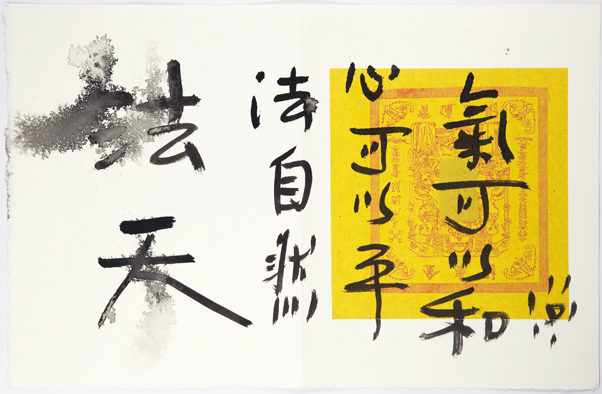 氣可以和
心可以平
法自然
法天